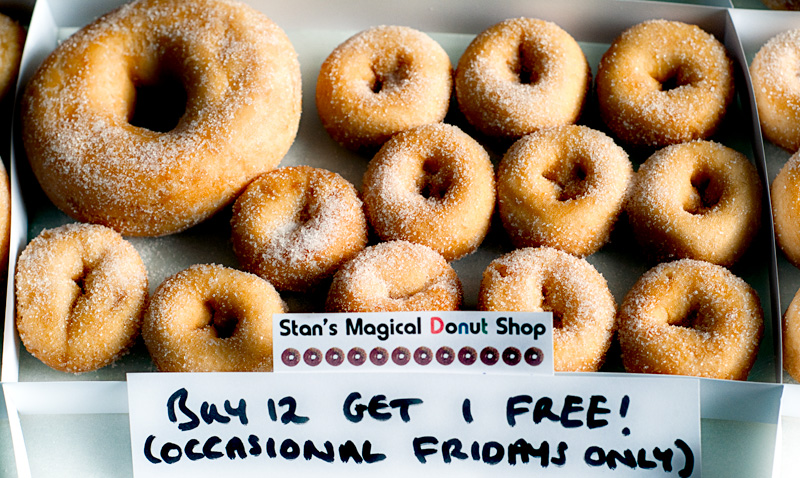 Stan's Magical Donut Shop
BUY 12 GET 1 FREE!
(OCCASIONAL FRIDAYS ONLY)